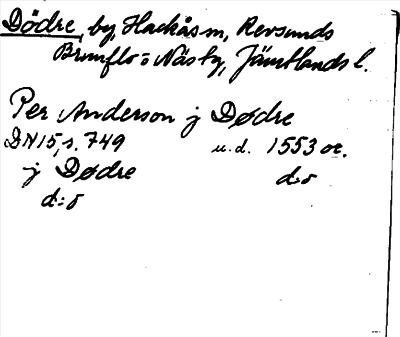 Dödre, by, Hackås sn, Revsunds
Brunflo o Näs tg, Jämtlands l.
Per Anderson j Dødre
DN15, s. 749 u.d. 1553 oc.
j Dødre d:o
d:o